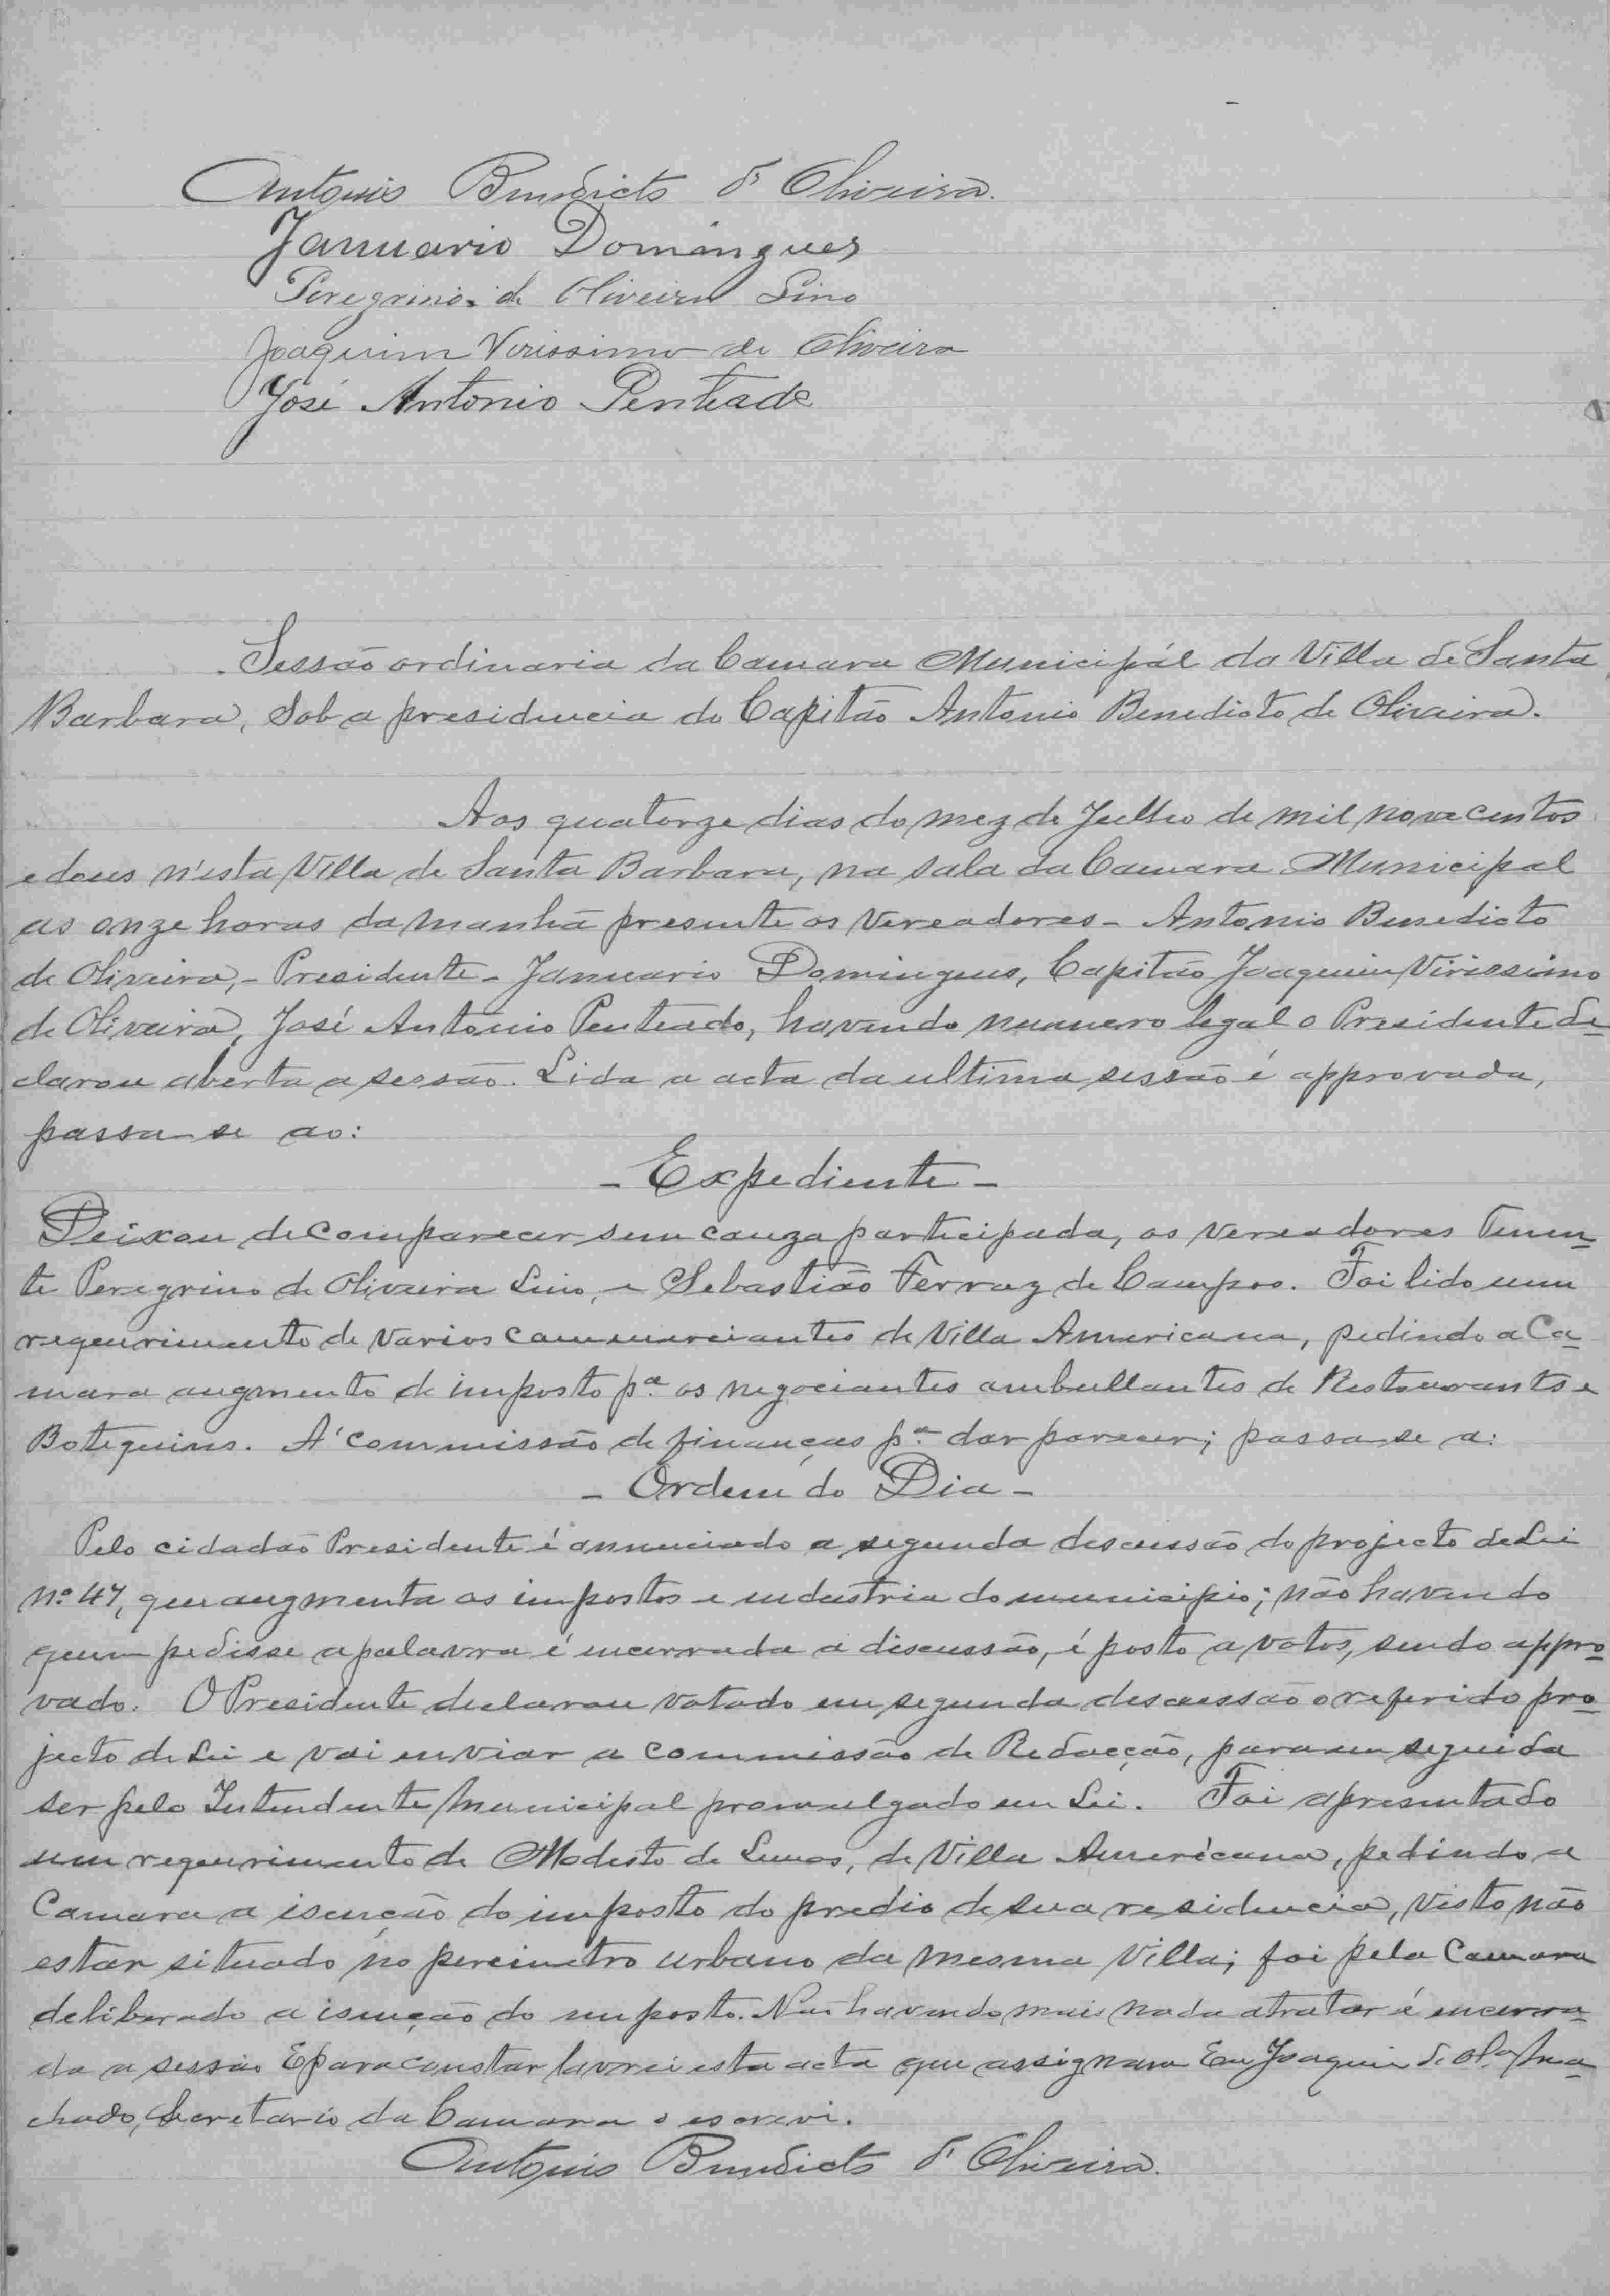 Antonio Benedicto d' Oliveira.
Januario Domingues
Peregrino de Oliveira Lino
Joaquim Virissimo de Oliveira
José Antonio Penteado
Sessão ordinaria da Camara Municipál da Villa de Santa
Barbara, Sob a presidencia do Capitão Antonio Benedicto de Oliveira.
Aos quatorze dias do mez de Julho de mil novecentos
e dous n'esta Villa de Santa Barbara, na sala da Camara Municipal
as onze horas da manhã presente os Vereadores - Antonio Benedicto
de Oliveira, - Presidente - Januario Domingues, Capitão Joaquim Virissimo
de Oliveira, José Antonio Penteado, havendo numero legal o Presidente de-
clarou aberta a sessão. Lida a acta da ultima sessão é approvada,
passa-se ao:
- Expediente -
Deixou de comparecer sem cauza participada, os Vereadores Tenen-
te Peregrino de Oliveira Lino, e Sebastião Ferraz de Campos. Foi lido um
requerimento de varios commerciantes de Villa Americana, pedindo a Ca-
mara augmento de imposto pª os negociantes ambullantes de Restaurants e
Botequins. A' commissão de finanças pª dar parecer; passa-se a:
- Ordem do Dia -
Pelo cidadão Presidente é annunciado a segunda descussão do projecto de Lei
Nº 47, que augmenta os impostos e industria do municipio; não havendo
quem pedisse a palavra é incerrada a discussão, é posto a votos, sendo appro-
vado. O Presidente declarou votado em segunda descussão o referido pro-
jecto de Lei e vai enviar a commissão de Redacção, para em seguida
ser pelo Intendente Municipal promulgado em Lei. Foi apresentado
um requerimento de Modesto de Lemos, de Villa Americana, pedindo a
Camara a isenção do imposto do predio de sua residencia, visto não
estar situado no pereimetro urbano da mesma Villa; foi pela Camara
deliberado a isenção do imposto. Não havendo mais nada a tratar é encerra-
da a sessão E para constar lavrei esta acta que assignam Eu Joaquim de Olª Ma-
chado, Secretario da Camara o escrevi.
Antonio Benedicto d' Oliveira.